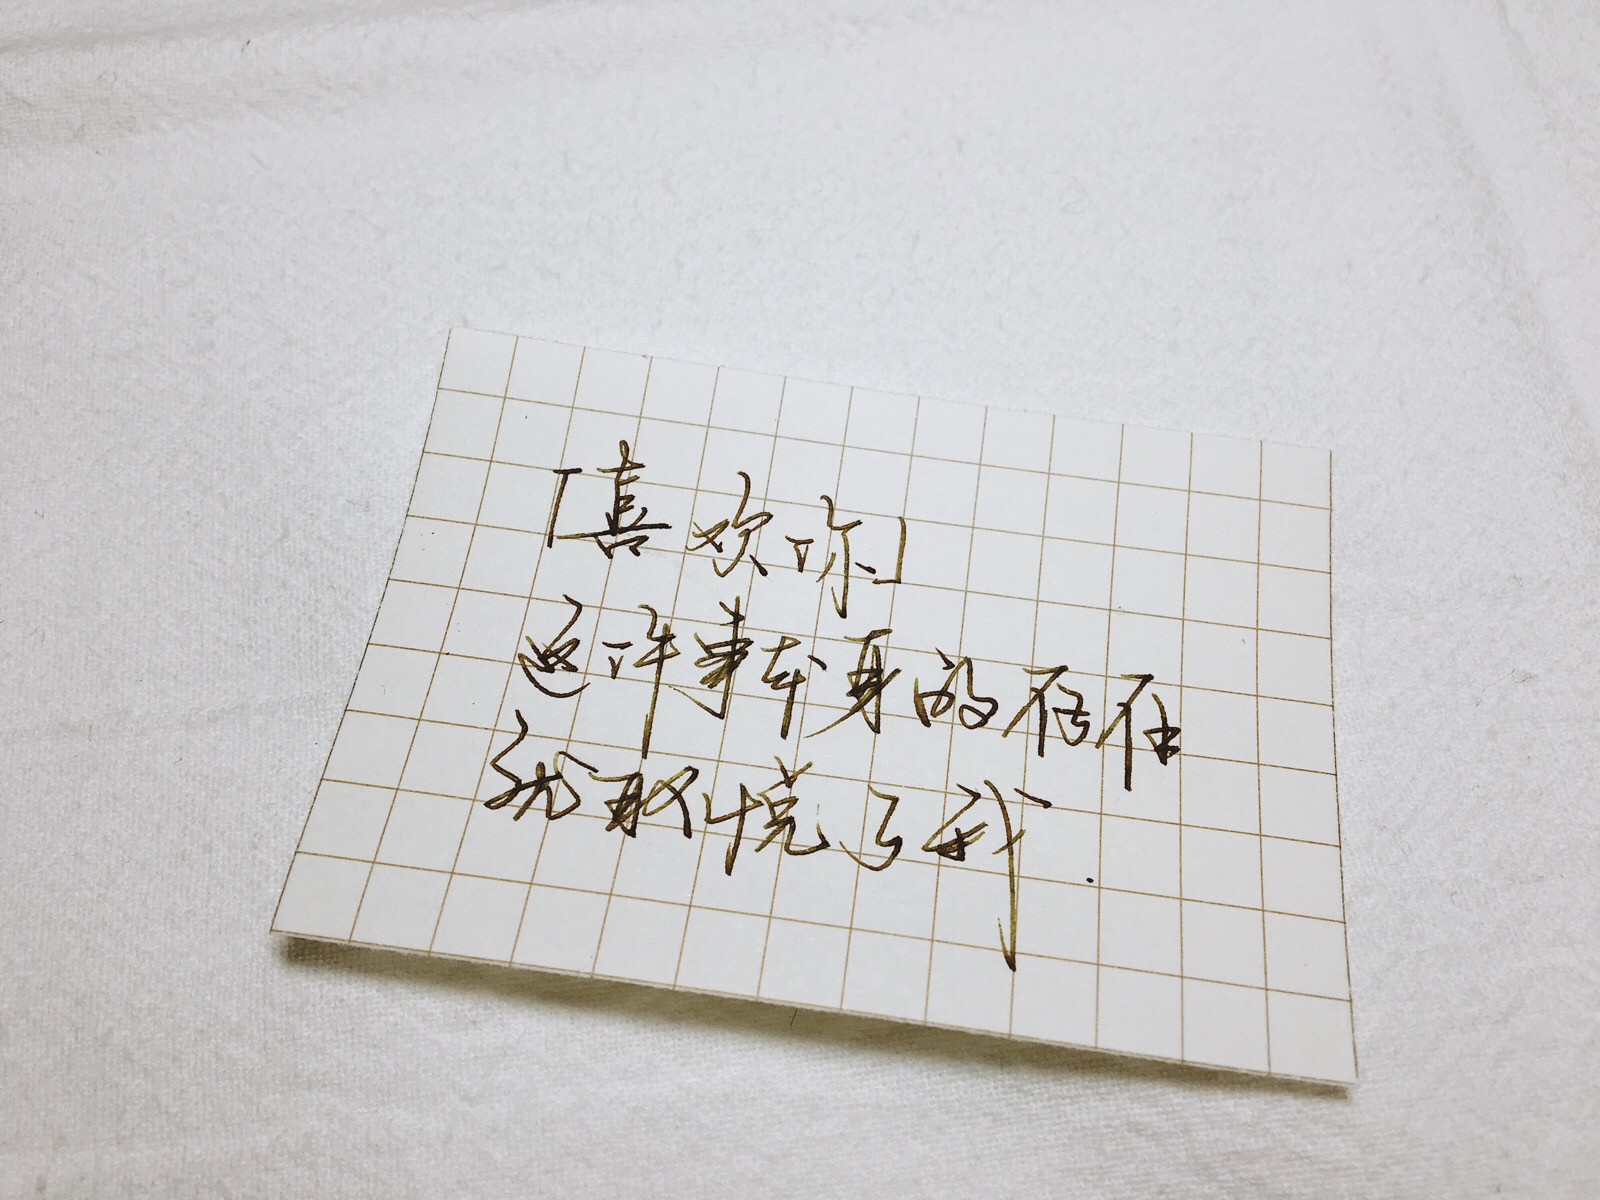 「喜欢你」
这件事本身的存在
就取悦了我.